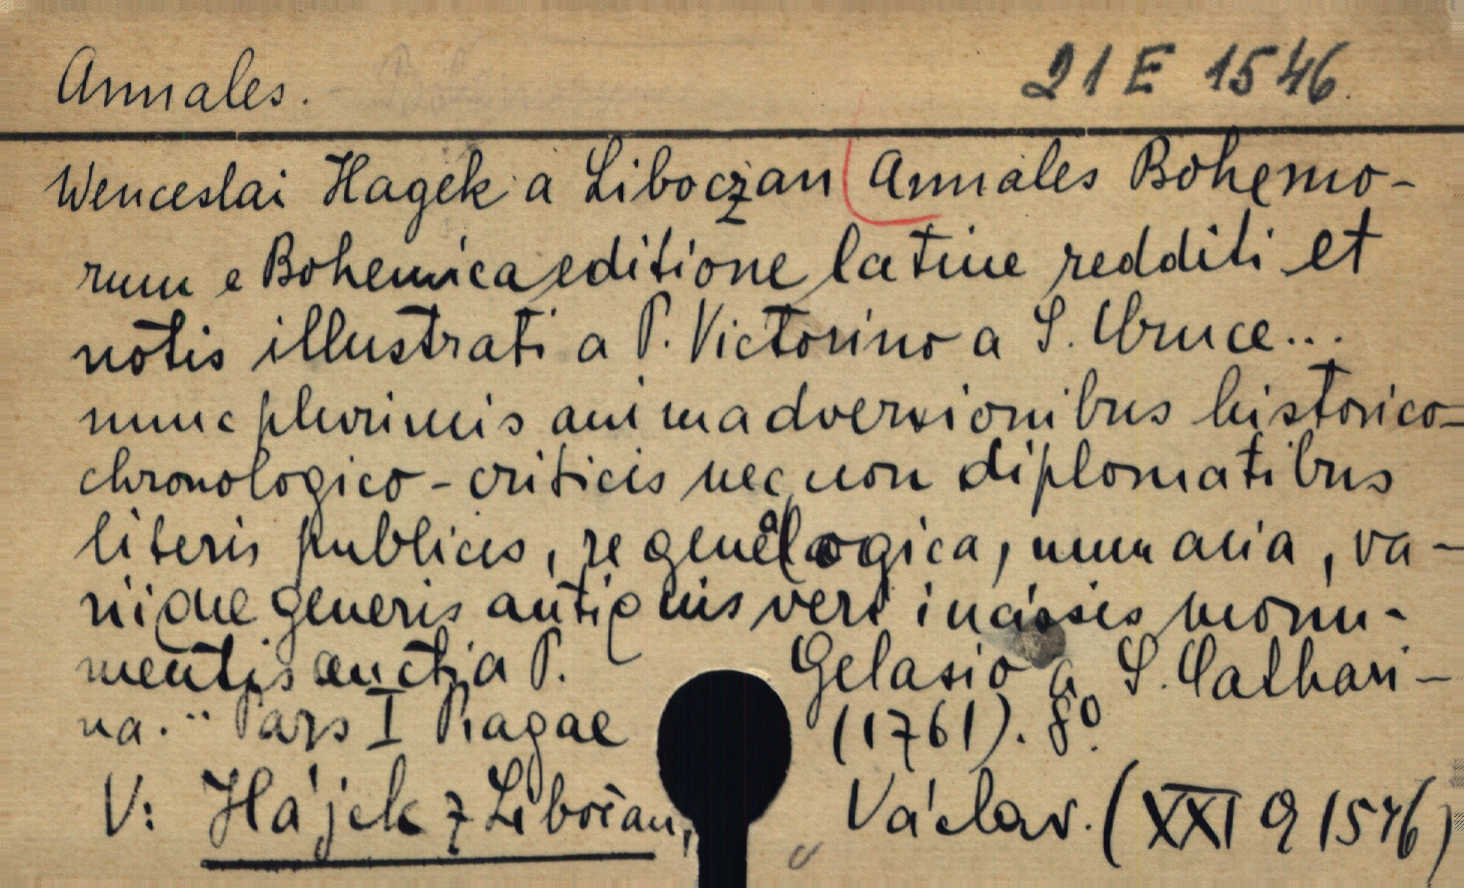 Annales.
21 E 1546.
Wenceslai Hagek a Liboczan Annales Bohemo-
rum e Bohemica editione latine redditi et
notis illustrati a P. Victorino a S. Cruce...
nunc plurimis animadversionibus historico-
chronologico-criticis nec non diplomatibus
literis publicis, re genealogica, numaria, va-
riique generis antiquis veri incisis monu-
mentis aucti a P. Gelasio a S. Cathari-
na. .. Pars I Pragae (1761). 8o.
V: Hájek z Libočan, Václav. (XXI 1546)